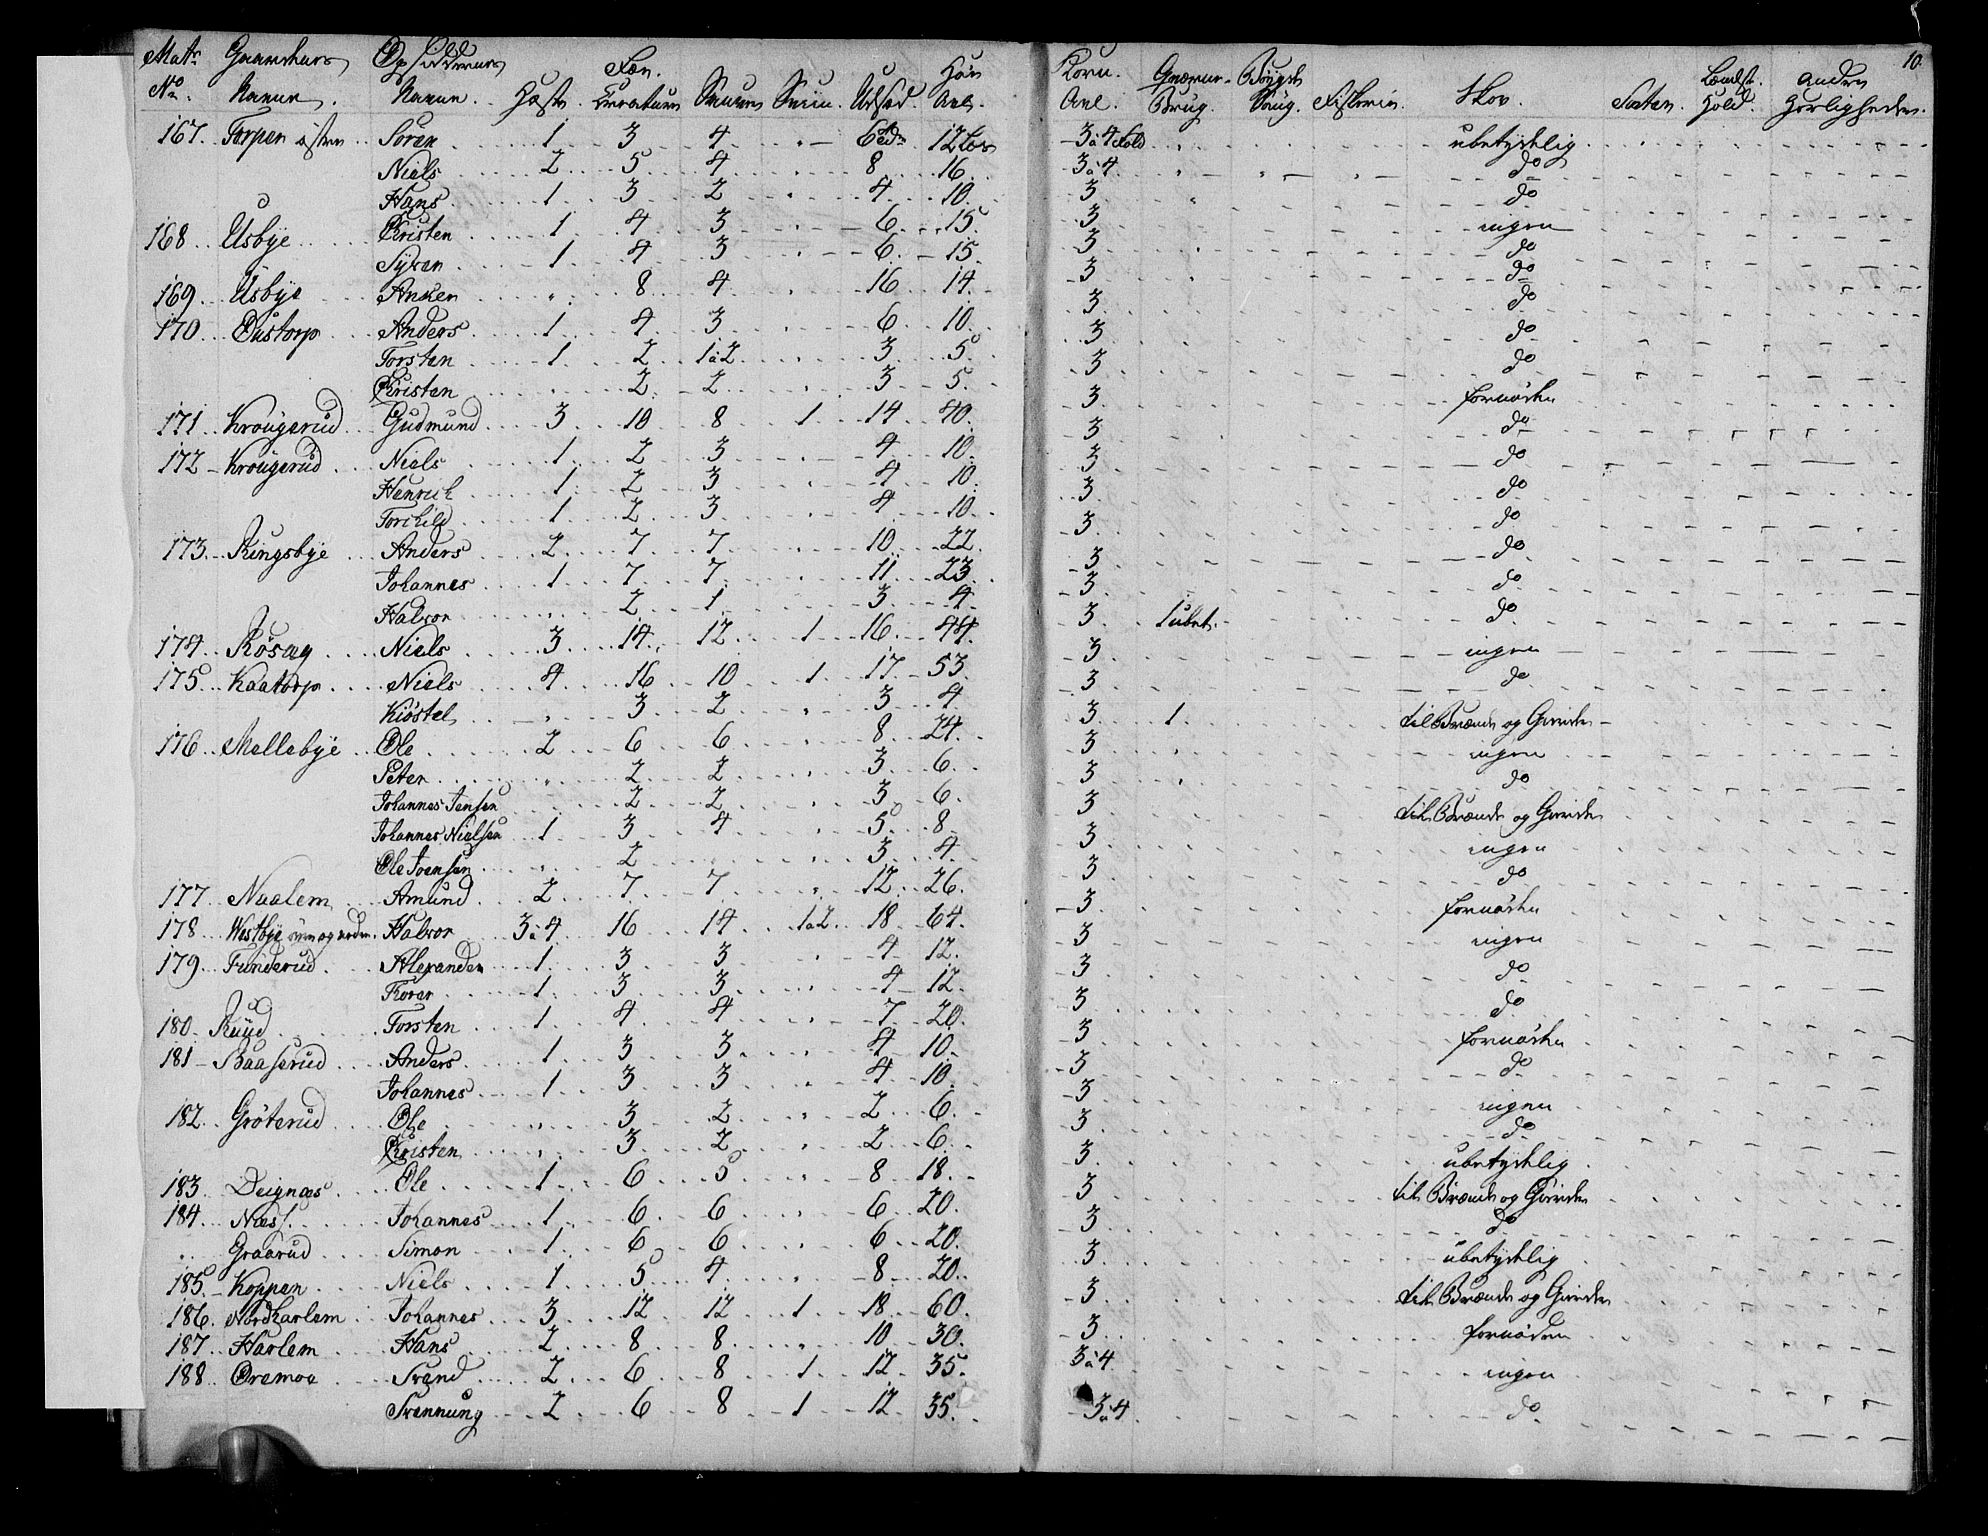 10.
Matr: No. Gaardenes Navne. Opsiddernes Navne. Heste. Fæe. Creature. Smaae Sviin. Udsæd. Høe Avl. Korn Avl. Qværne-Brug. Bøygde Saug. Fiskerie. Skov. Sæter. Lændst. Hold. Andre Herligheder.
167. Torpen østre Soren 1 3 4 6 tdr 12 Læs 3 à 4 fold ubetydelig
Niels 2 5 4 8 16 3 à 4 do
Hans 1 3 2 4 10. 3 do
168 Usbye Christen 1 4 3 6 15. 3 ingen
Syver 1 4 3 6 15 3 do
169 Usbye Anker 8 4 16 14. 3 do
170 Østorp Anders 1 4 3 6 10. 3 do
Torsten 1 2 1 à 2 3 5. 3 do
Christen 2 2 3 5. 3 do
171 Krougerud Gudmund 3 10 8 1 14 40. 3 fornøden
172 Krougerud Niels 1 2 3 4 10. 3 do
Henrich 1 2 3 4 10 3 do
Torchild 1 2 3 4 10 3 do
173. Ringsbye Anders 2 7 7 10 22. 3 do
Johannes 1 7 7 11 23 3 do
Halvor 2 1 3 4 3 do
174 Røsæg Niels 3 14 12 1 16 44. 3 1 ubet. do
175 Kaatorp Niels 4 16 10 1 17 53. 3 ingen
Kiøstel 3 2 3 4. 3 do
176 Mellebye Ole 2 6 6 8 24. 3 1. til Brænde og Gierde
Peter 2 2 3 6. 3 ingen
Johannes Jensen 2 2 3 6. 3 do
Johannes Nielsen 1 3 4 5 8. 3 til Brænde og Gierde
Ole Joensen 2 3 4. 3 ingen
177 Naalem Amund 2 7 7 12 26. 3 do
178 Westbye og nedre Halvor 3 à 4 16 14 1 à 2 18 64. 3 fornøden
179 Funderud Alexander 1 3 3 4 12. 3 ingen
Torer 1 3 3 4 12. 3 do
180 Ruud Torsten 1 4 4 7 20. 3 do
181 Baaserud Anders 1 3 3 4 10. 3 fornøden
Johannes 1 3 3 4 10. 3 do
182 Grøterud Ole 3 2 2 6. 3 ingen
Christen 3 2 2 6. 3 do
183 Deignæs Ole 1 6 5 8 18. 3 ubetydelig
184 Næss Johannes 1 6 6 6 20. 3 til Brænde og Gierde
Graarud Simon 1 6 6 6 20. 3 do
185. Koppen Niels 1 5 4 8 20. 3 ubetydelig
186. Nordharlem Johannes 3 12 12 1 18 60. 3 til Brænde og Gierde
187 Harlem Hans 2 8 8 10 30. 3 fornøden
188 Øremoe Svend 2 6 8 1 12 35. 3 à 4 ingen
Svennung 2 6 8 1 12 35. 3 à 4 do